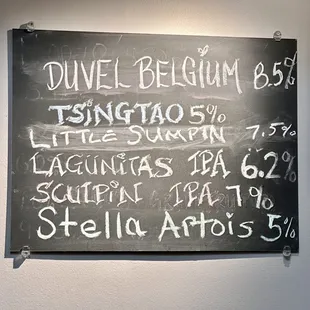 DUVEL BELGIUM 8.5%
TSINGTAO 5%
LITTLE SUMPIN 7.5%
LAGUNITAS IPA 6.2%
SCULPIN IPA 7%
Stella Artois 5%